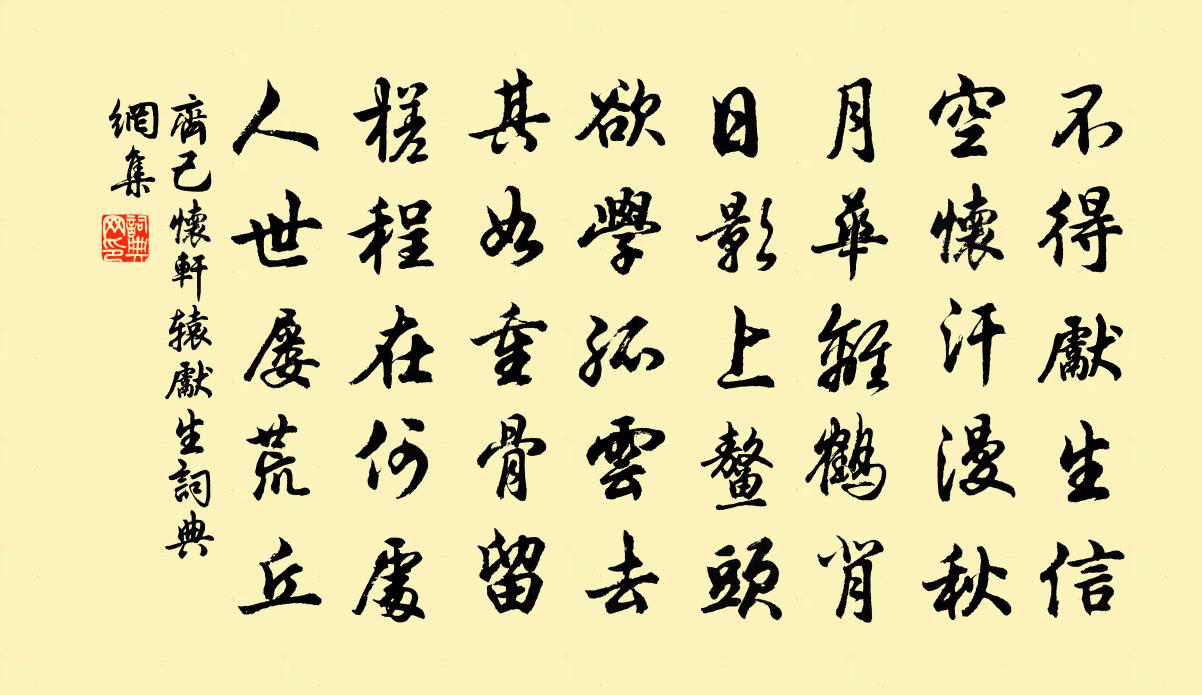 不得獻生信
空懷汗漫秋
月華離鶴背
日影上鰲頭
欲學孤雲去
其如重骨留
槎程在何處
人世屢荒丘
齊己懷軒辕獻生詞典
網集
詞典
网印